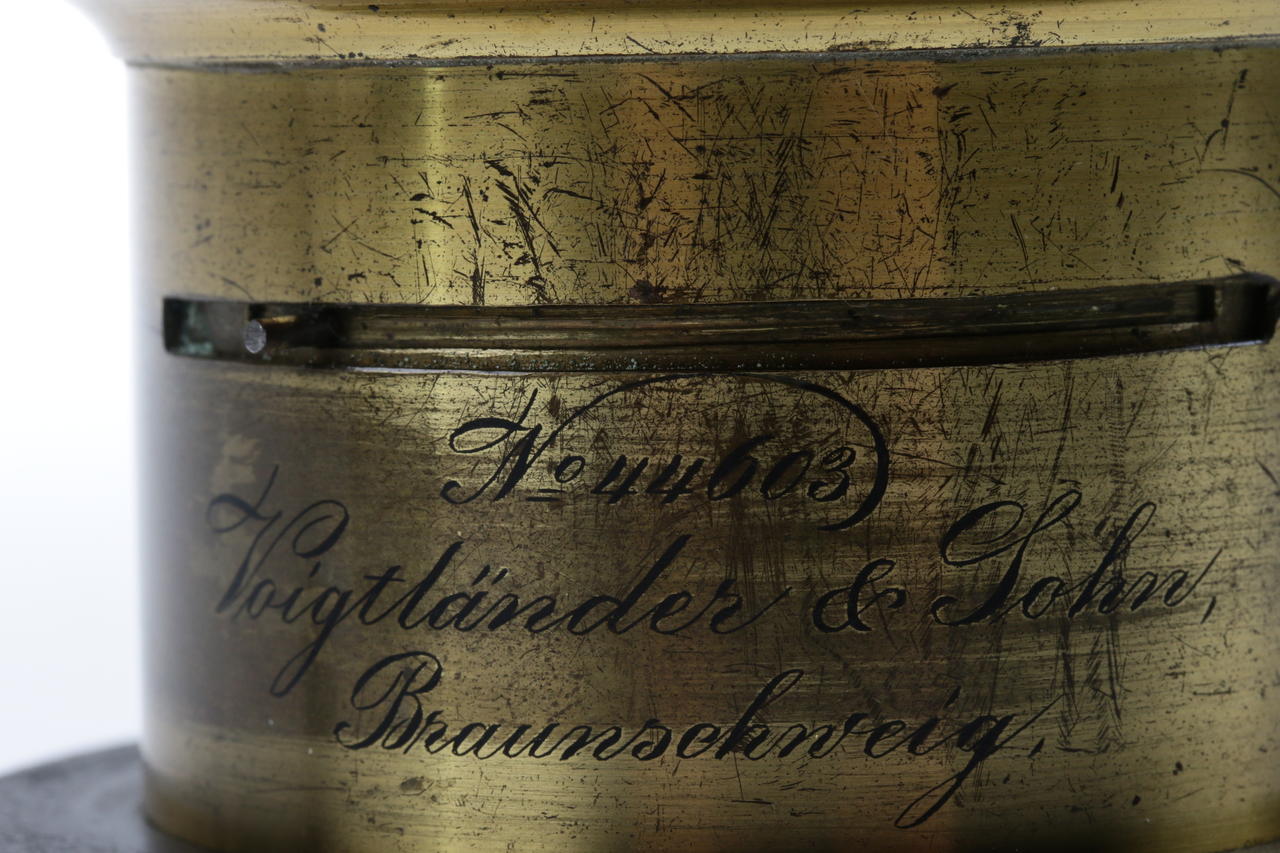 No 44603
Voigtländer & Sohn,
Braunschweig.